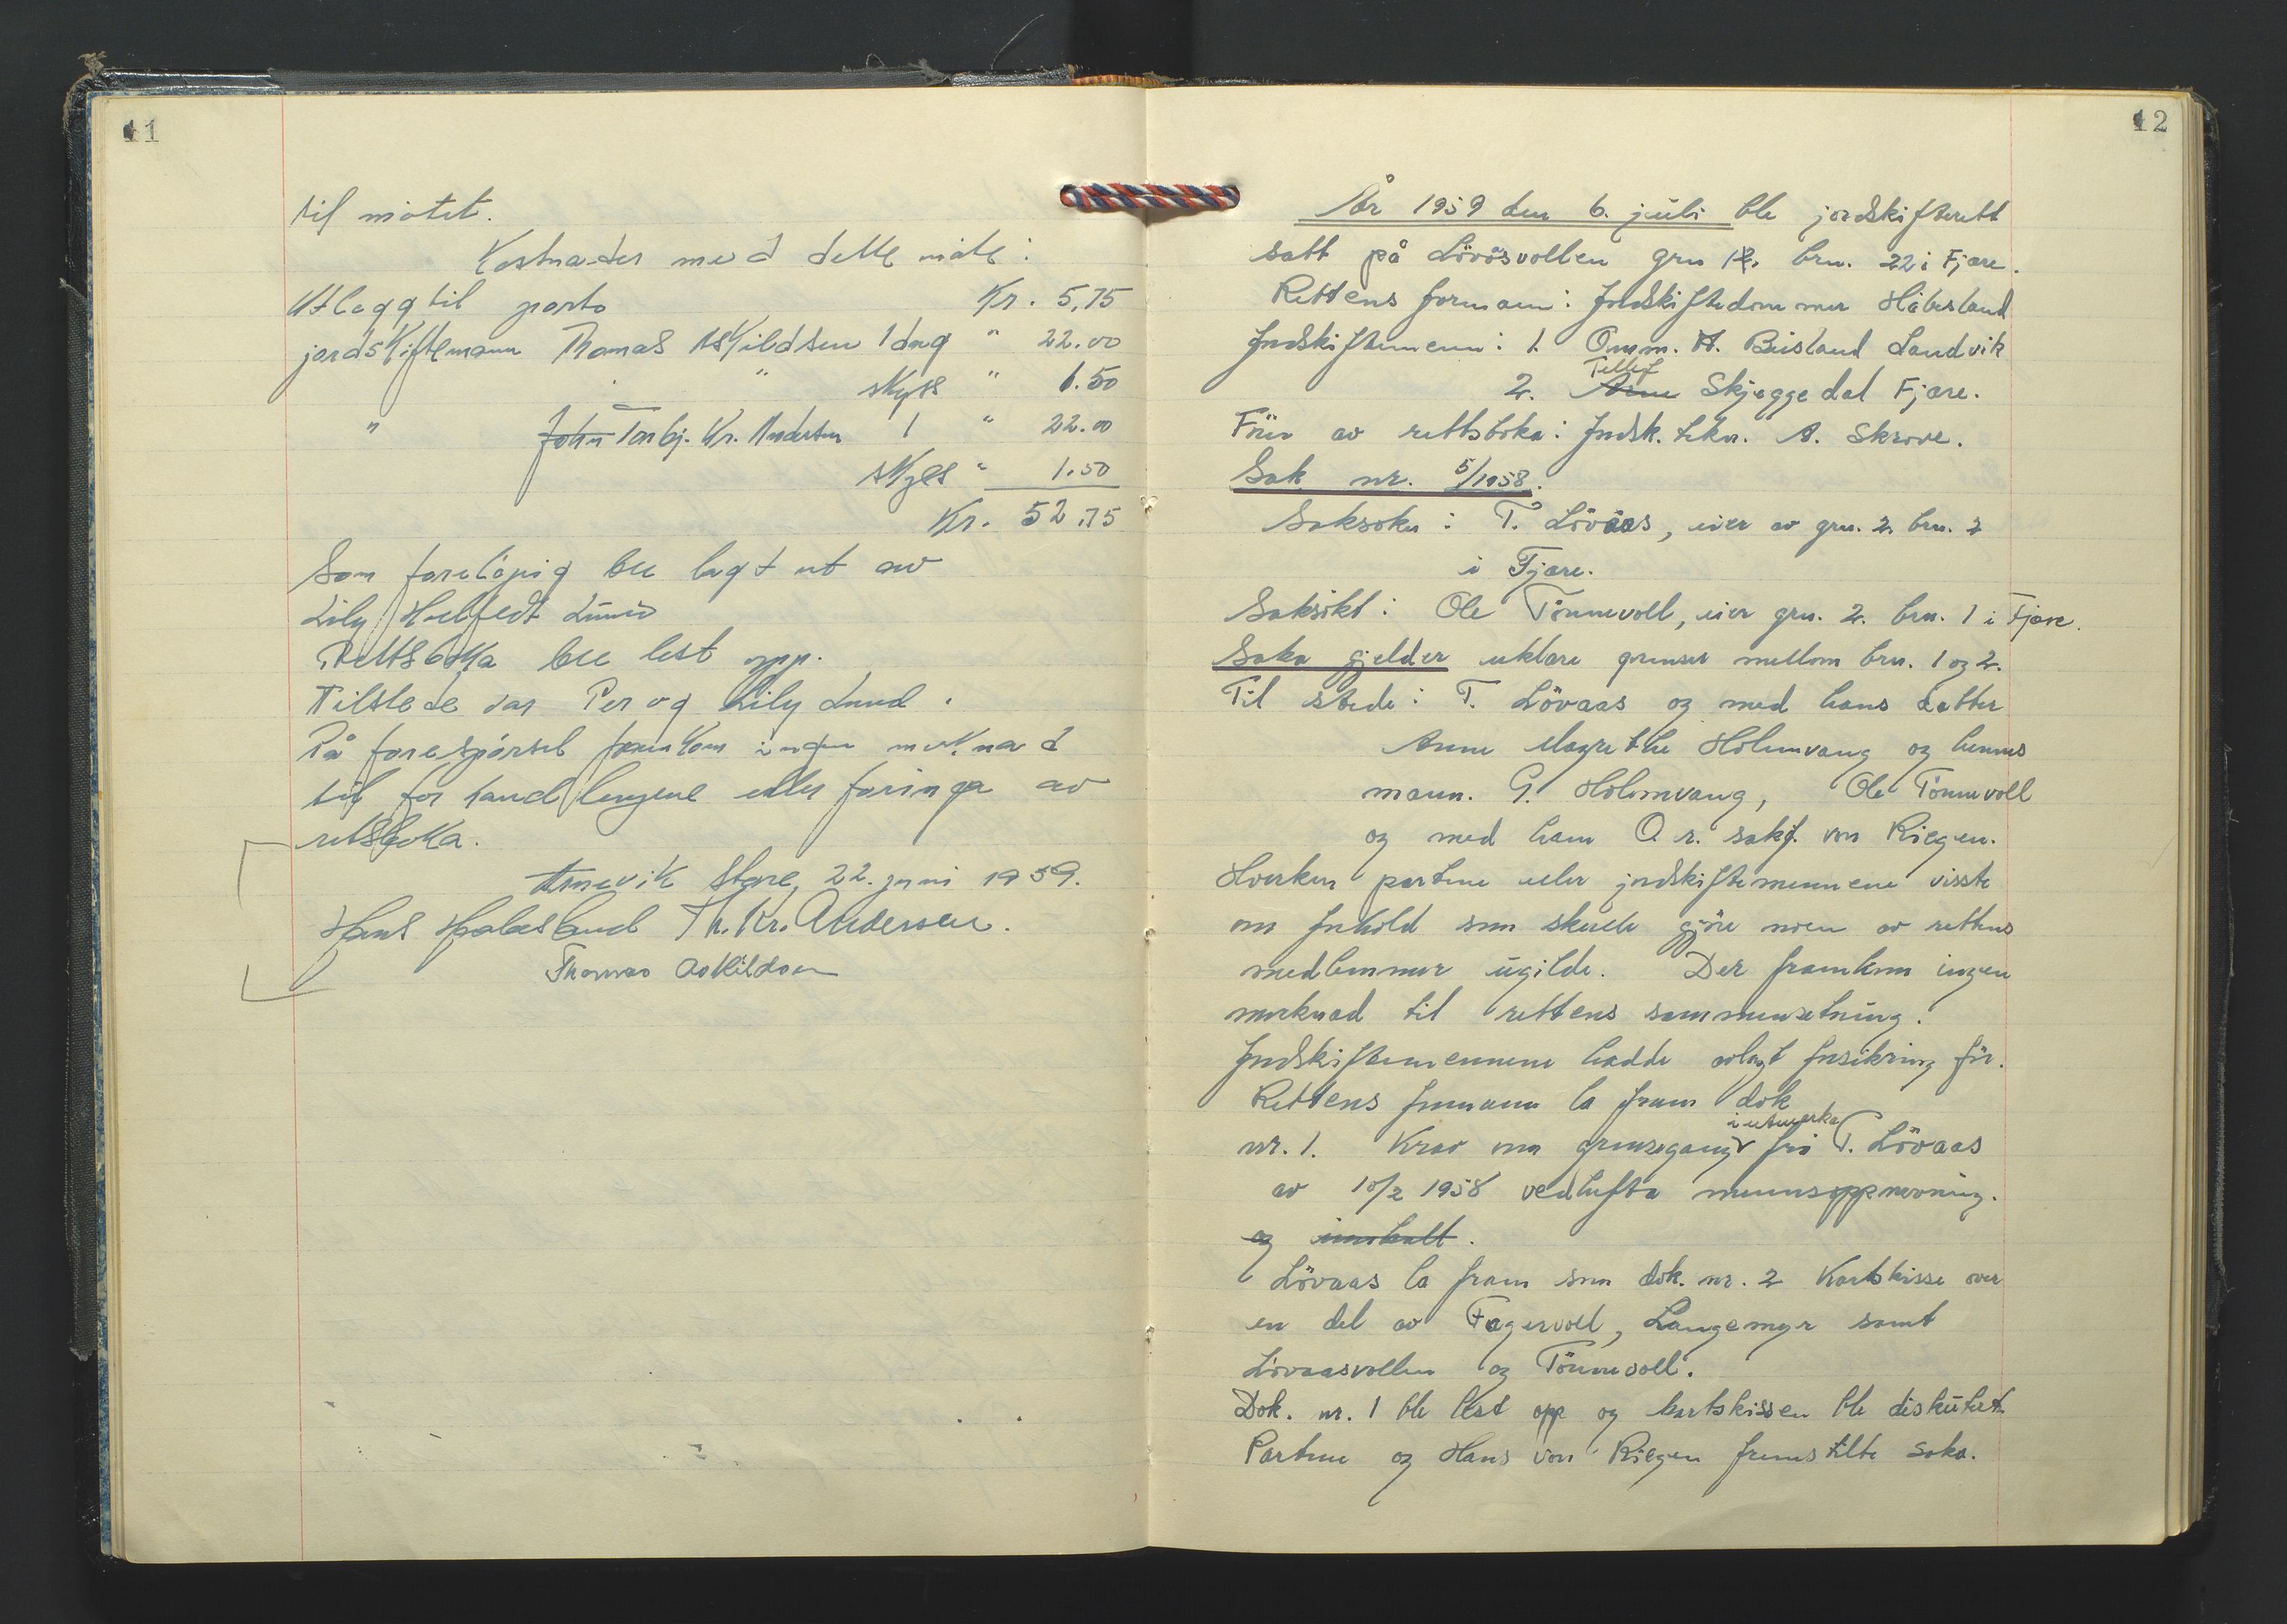 11
til møtet.
Kostnader med dette møte:
Utlegg til porto Kr. 5,75
jordskiftemann Thomas Askildsen 1 dag " 22.00
" skyss " 1.50
" John Torbj. Kr. Andersen 1 " 22.00
skyss " 1.50
Kr. 52.75
Som foreløpig ble lagt ut av
Lily Lund
Rettsboka ble lest opp.
Tilstede var Per og Lily Lund.
På forespørsel framkom ingen merknad
til forhandlingene eller føringa av
rettsboka.
Arnevik Støre, 22. juni 1959.
Hans Haabesland Th. Kr. Andersen.
Thomas Askildsen
12
År 1959 den 6. juli ble jordskifterett
satt på Lövåsvollen grn 12. brn. 22 i Fjære.
Rettens formann: Jordskiftedommer Håbesland
Jordskiftemenn: 1. Omm. A. Beisland Landvik
Tellef
2. Arne Skjeggedal Fjære.
Förer av rettsboka: Jordsk. tekn. A. Skrove.
Sak nr. 5/1958.
Saksøker: T. Lövaas, eier av grn. 2 brn. 2
i Fjære.
Saksökt: Ole Tönnevoll, eier grn. 2. brn. 1 i Fjære.
Saka gjelder uklare grenser mellom brn. 1 og 2.
Til stede: T. Lövaas og med hans datter
Anne Magrethe Holmvang og hennes
mann. G. Holmvang, Ole Tönnevoll
og med ham O. r. sakf. von Riegen.
Hverken partene eller jordskiftemennene visste
om forhold som skulle gjöre noen av rettens
medlemmer ugilde. Der framkom ingen
merknad til rettens sammensetning.
Jordskiftemennene hadde avlagt forsikring för.
Rettens formann la fram dok
i utmarka
nr. 1. Krav om grensegang frå T. Lövaas
av 10/2 1958 vedhefta mennsoppnevning.
og innkalt.
Lövaas la fram som dok. nr. 2 Kartskisse over
en del av Fagervoll, Langemyr samt
Lövaasvollen og Tönnevoll.
Dok. nr. 1 ble lest opp og kartskissen ble diskutert.
Partene og Hans von Riegen fremstilte saka.